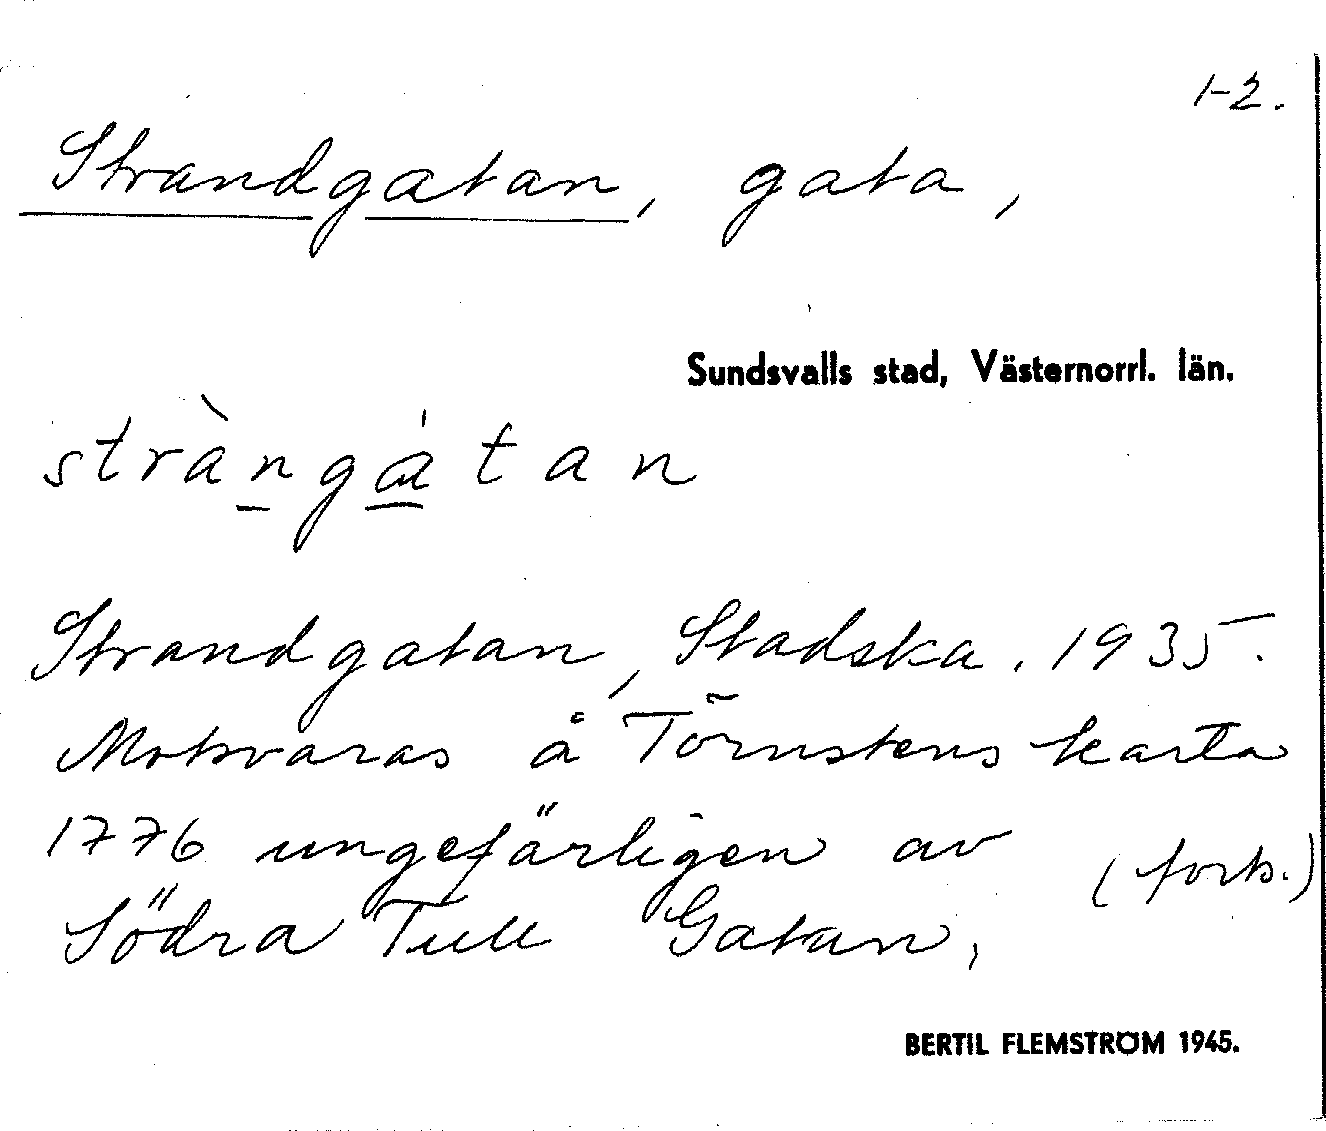 1-2.
Strandgatan, gata,
Sundsvalls stad, Västernorrl. län.
stràngátan
Strandgatan, Stadska. 1935.
Motsvaras å Törnstens karta
1776 ungefärligen av
(forts.)
Södra Tull Gatan,
BERTIL FLEMSTRÖM 1945.